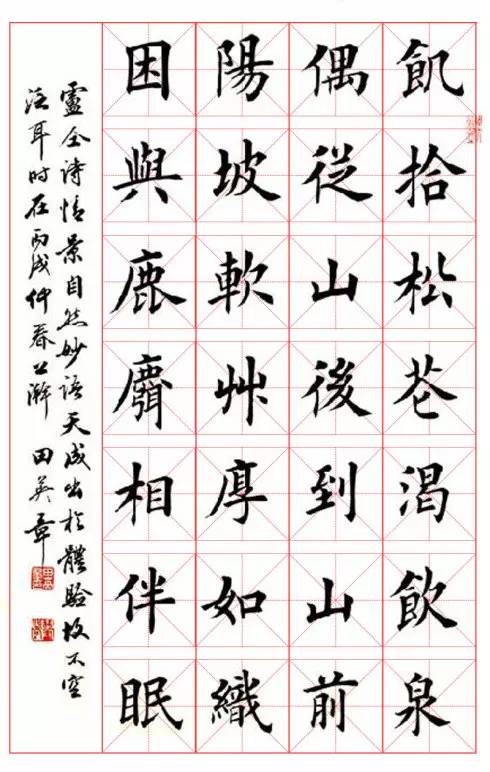 飢拾松花渴飲泉
偶従山後到山前
陽坡軟艸厚如織
困與鹿麛相伴眠
靈仝诗情景自然妙语天成出於體驗故不空
泛耳时在丙戌仲春上澣 田英章